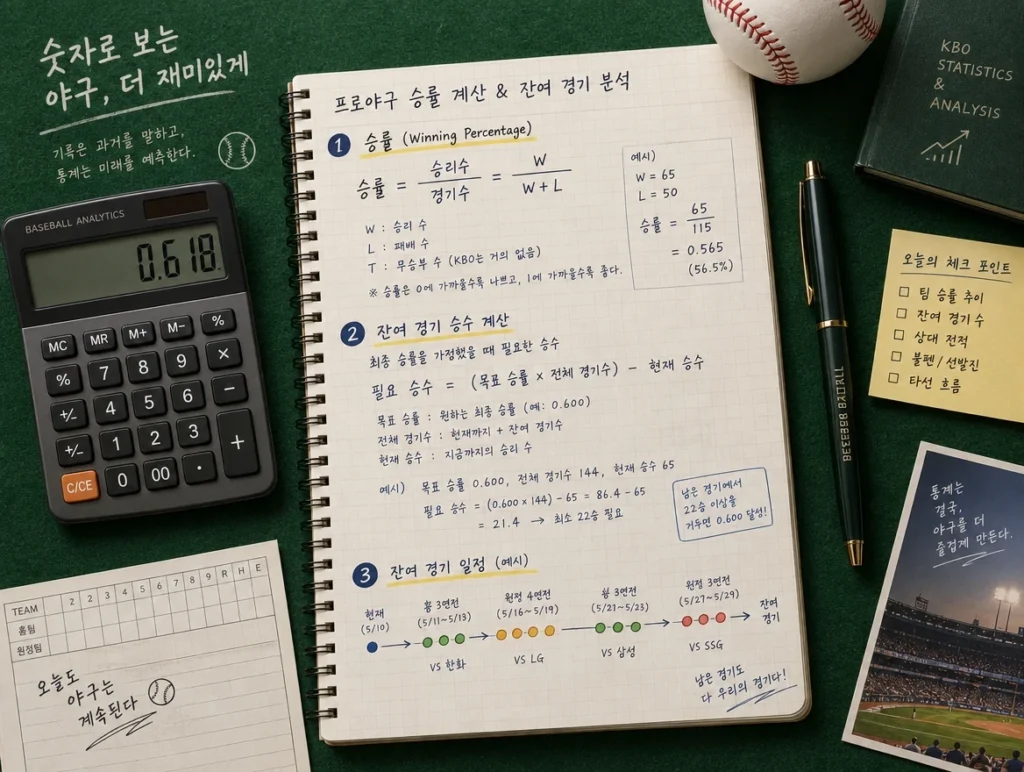 숫자로 보는
야구, 더 재미있게
기록은 과거를 말하고,
통계는 미래를 예측한다.
BASEBALL ANALYTICS
0.618
MC MR M+ M- %
% 7 8 9 ×
+/- 4 5 6 −
+/- 1 2 3 +
C/CE 0 00 ·
프로야구 승률 계산 & 잔여 경기 분석
1 승률 (Winning Percentage)
승률 = 승리수 / 경기수 = W / W + L
W : 승리 수
L : 패배 수
T : 무승부 수 (KBO는 거의 없음)
※ 승률은 0에 가까울수록 나쁘고, 1에 가까울수록 좋다.
예시)
W = 65
L = 50
승률 = 65 / 115
= 0.565
(56.5%)
2 잔여 경기 승수 계산
최종 승률을 가정했을 때 필요한 승수
필요 승수 = (목표 승률 × 전체 경기수) − 현재 승수
목표 승률 : 원하는 최종 승률 (예: 0.600)
전체 경기수 : 현재까지 + 잔여 경기수
현재 승수 : 지금까지의 승리 수
예시) 목표 승률 0.600, 전체 경기수 144, 현재 승수 65
필요 승수 = (0.600 × 144) − 65 = 86.4 − 65
= 21.4 → 최소 22승 필요
남은 경기에서
22승 이상을
거두면 0.600 달성!
3 잔여 경기 일정 (예시)
현재
(5/10)
3연전
(5/11~5/13)
원정 4연전
(5/16~5/19)
3연전
(5/21~5/23)
원정 3연전
(5/27~5/29)
잔여
경기
VS 한화
VS LG
VS 삼성
VS SSG
남은 경기도
다 우리의 경기다!
KBO
STATISTICS
&
ANALYSIS
오늘의 체크 포인트
□ 팀 승률 추이
□ 잔여 경기 수
□ 상대 전적
□ 불펜/선발진
□ 타선 흐름
통계는
결국,
야구를 더
즐겁게 만든다.
TEAM 2 2 3 4 5 6 7 8 9 R H E
홈팀
원정팀
오늘도
야구는
계속된다